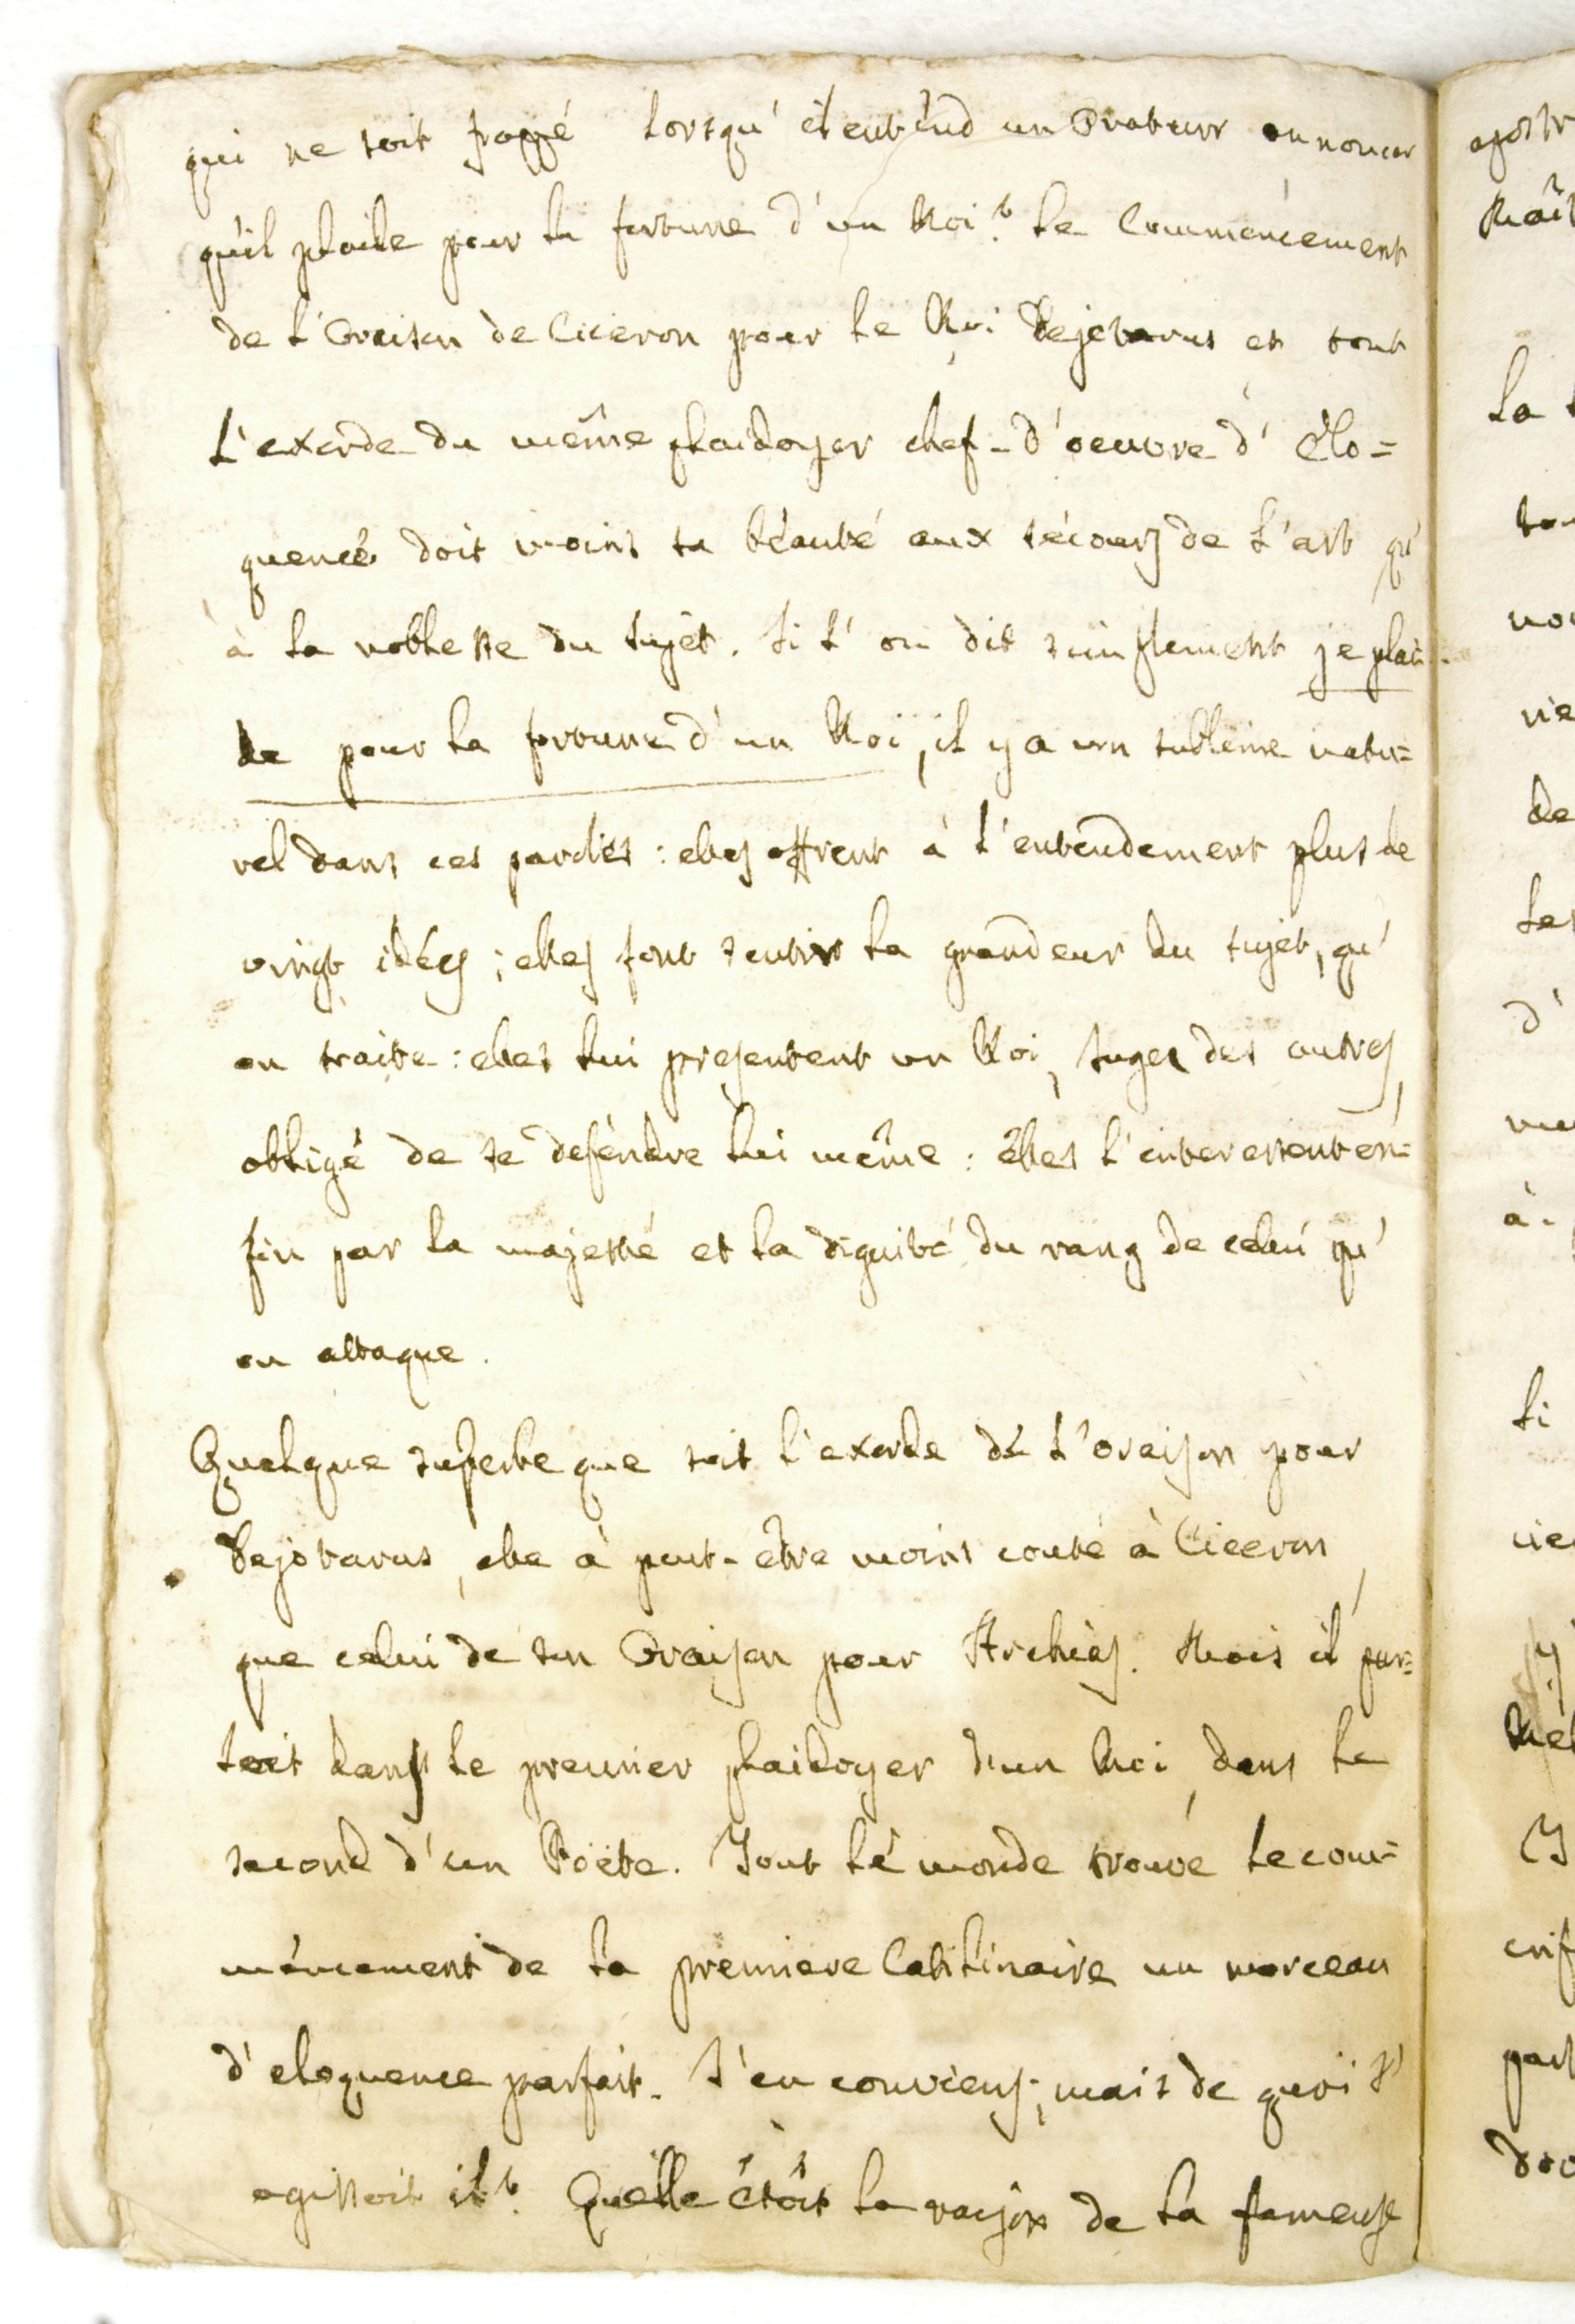 qui ne soit frappé lorsqu' il entend un Orateur annoncer
qu'il plaide pour la fortune d'un Roi? le Commencement
de l'Oraison de Ciceron pour le Roi Dejotarus et tout
L'exorde du même plaidoyer chef-d'oeuvre d' Élo=
quence doit moins sa béauté aux sécours de l'art qu'
à la noblesse du sujet. Si l' on dit simplement je plai-
de pour la fortune d'un Roi, il y a un sublime natu=
rel dans ces paroles : elles offrent à l'entendement plus de
vingt idées ; elles font sentir la grandeur du sujet, qu'
on traite : elles lui presentent un Roi, Juger des autres,
obligé de se défendre lui même : elles l'interessent en=
fin par la majesté et la dignité du rang de celui qu'
on attaque.
Quelque superbe que soit l'exorde de l'oraison pour
Dejotarus, elle à peut-être moins couté à Ciceron,
que celui de son Oraison pour Archias. Mais il par=
loit dans le premier plaidoyer d'un Roi, dans le
second d'un Poëte. Tout le monde trouve le com=
mencement de la premiere Catilinaire un morceau
d'eloquence parfait. J'en conviens; mais de quoi s'
agissoit il? Quelle étoit la raison de la fameuse
apostr
la
de
d'
à
si